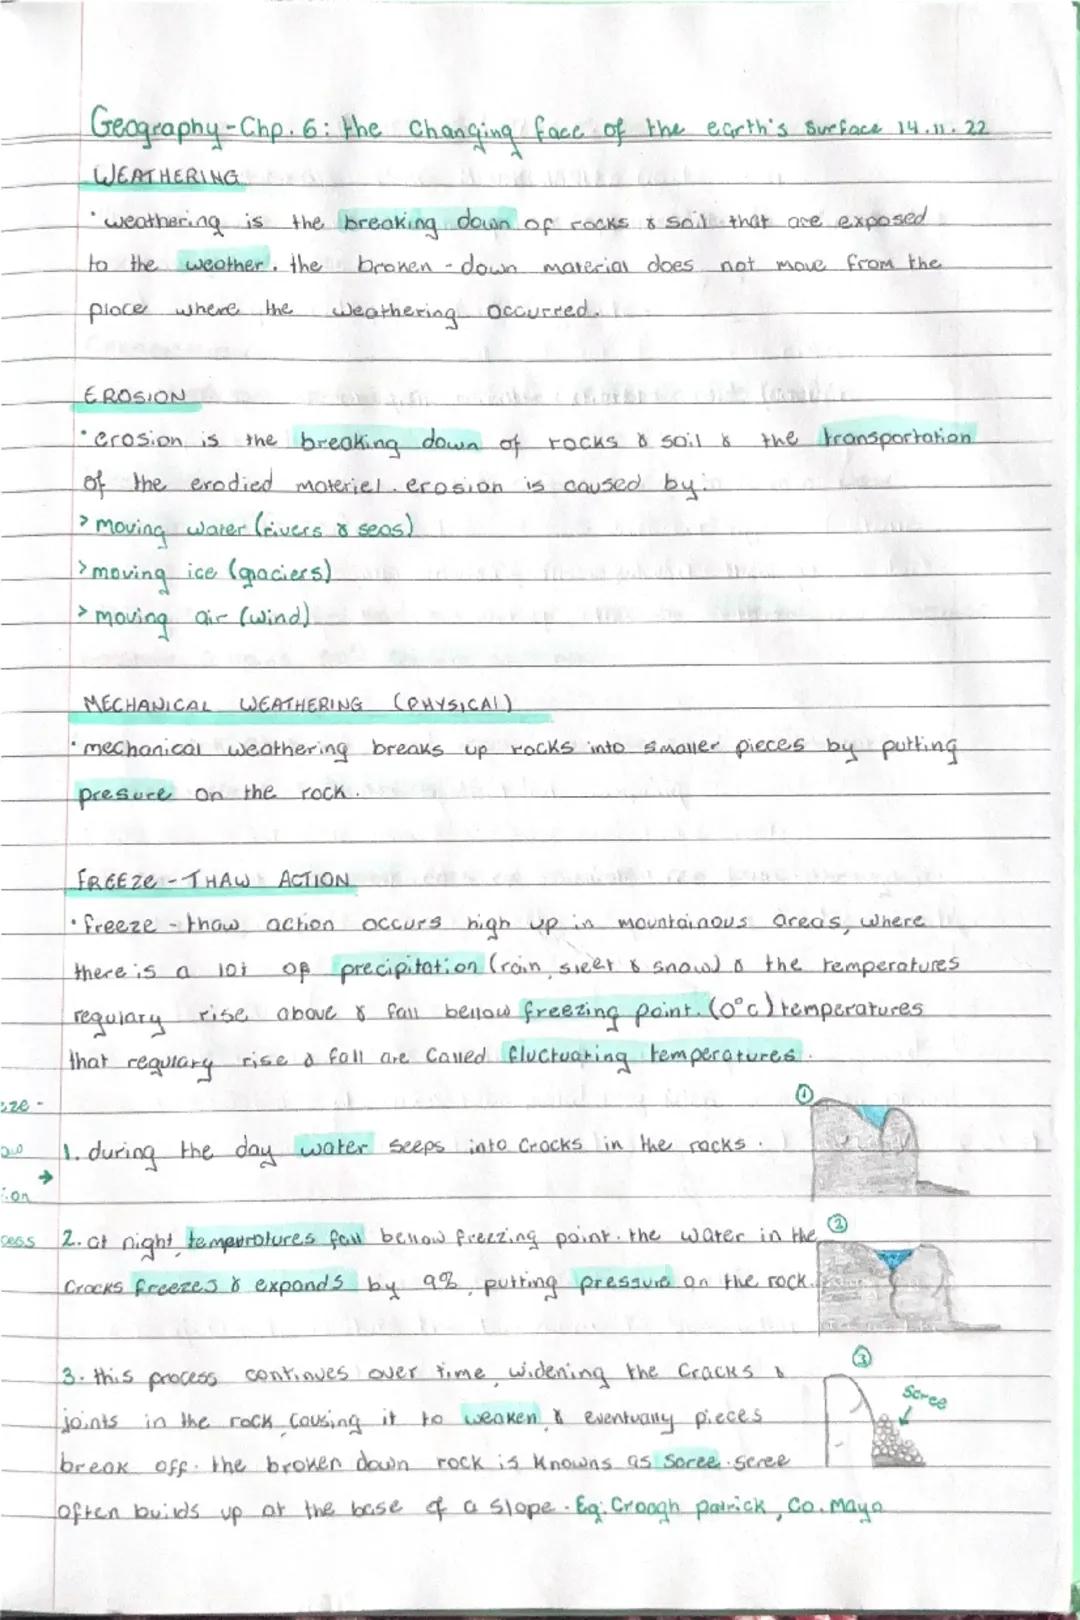 Geography - Chp. 6: the Changing face of the earth's surface 14.11.22
WEATHERING
• weathering is the breaking down of rocks & soil that are exposed
to the weather. the broken - down material does not move from the
place where the weathering occurred.
EROSION
• erosion is the breaking down of rocks & soil & the transportation
of the erodied materiel. erosion is caused by:
> moving water (rivers & seas)
> moving ice (glaciers)
> moving air (wind)
MECHANICAL WEATHERING (PHYSICAl)
• mechanical weathering breaks up rocks into smaller pieces by putting
presure on the rock.
FREEZe - THAW ACTION
• freeze - thaw action occurs high up in mountainous areas, where
there is a lot of precipitation (rain, sleet & snow) & the temperatures
regulary rise above & fall bellow freezing point. (0°c) temperatures
that regulary rise & fall are called fluctuating temperatures.
1. during the day water seeps into cracks in the rocks.
①
2. at night, temperatures fall bellow freezing point. the water in the
②
cracks freezes & expands by 9%, putting pressure on the rock.
3. this process continues over time, widening the cracks &
③
Scree
joints in the rock causing it to weaken & eventually pieces
break off. the broken down rock is knowns as Scree. scree
often builds up at the base of a slope. Eg. Croagh patrick, Co. Mayo